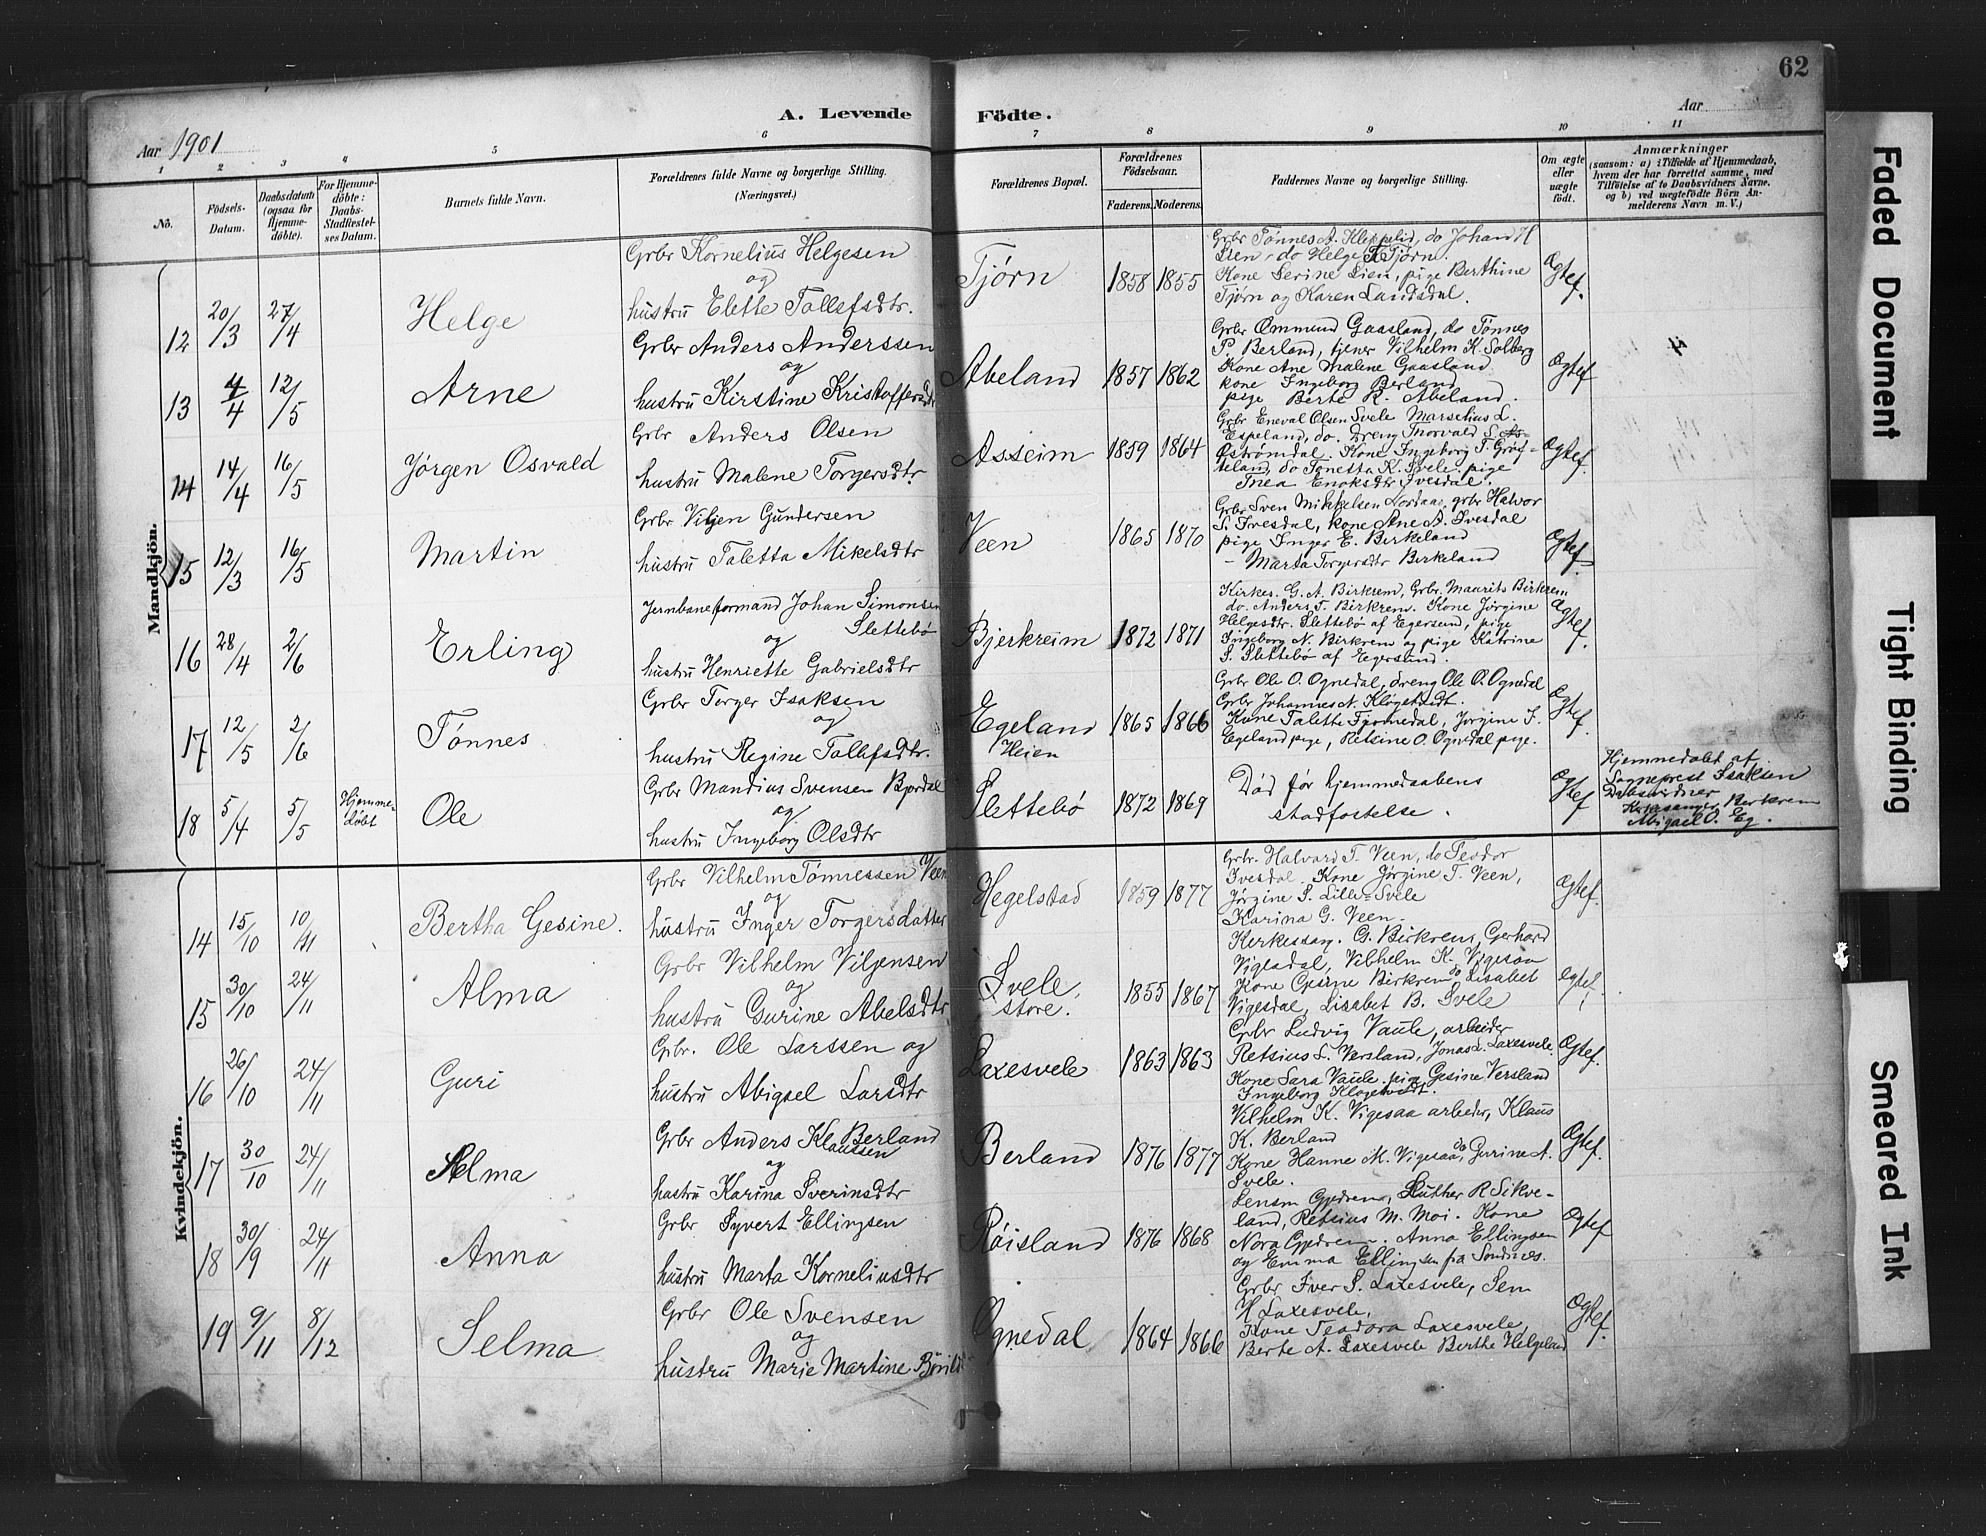 62
A. Levende Födte.
Aar 1901
Aar
1 2 3 4 5 6 7 8 9 10 11
No.
Födsels-Datum.
Daabsdatum (ogsaa for Hjemme-döbte).
For Hjemme-döbte: Daabs-Stadfæstel-ses Datum.
Barnets fulde Navn.
Forældrenes fulde Navne og borgerlige Stilling. (Næringsvei.)
Forældrenes Bopæl.
Forældrenes Födselsaar.
Faderens. Moderens.
Faddernes Navne og borgerlige Stilling.
Om ægte eller uægte födt.
Anmærkninger
(saasom: a) i Tilfælde af Hjemmedaab, hvem der har forrettet samme, med Tilföielse af to Daabsvidners Navne, og b) ved uægtefödte Börn Anmelderens Navn m. V.)
Mandkjön.
12 20/3 27/4 Helge
Grbr Kornelius Helgesen
og
hustru Elette Tollefsdtr.
Tjørn 1858 1855
Grbr Tønnes A. Kleppelid, do Johan H
Lien, do Helge T. Tjørn.
Kone Serine Lien, pige Berthine
Tjørn og Karen Landsdal.
Ægtef.
13 4/4 12/5 Arne
Grbr Anders Anderssen
og
hustru Kirstine Kristoffersdtr
Abeland 1857 1862
Grbr Ommund Gaasland, do Tønnes
P. Berland, tjener Vilhelm K. Solberg
Kone Ane Malene Gaasland
kone Ingeborg Berland
pige Berte R. Abeland.
Ægtef
14 14/4 16/5 Jørgen Osvald
Grbr Anders Olsen
hustru Malene Torgersdtr.
Asseim 1859 1864
Grbr Eneval Olsen Svele Marselius L.
Espeland, do. Dreng Thorvald S.
Østrømdal. Kone Ingeborg T. Grøt-
teland, do Tonetta K. Svele, pige
Inea Enoksdtr Ivesdal.
Ægtef.
15 12/3 16/5 Martin
Grbr Viljen Gundersen
hustru Taletta Mikelsdtr
Veen 1865 1870
Grbr Sven Mikkelsen Lordaa, grbr Halvor
S. Ivesdal, kone Ane A. Ivesdal
pige Inger E. Birkeland
- Marta Torgersdtr Birkeland
Ægtef.
16 28/4 2/6 Erling
Jernbaneformand Johan Simonsen
og Slettebø
hustru Henriette Gabrielsdtr
Bjerkreim 1872 1871
Kirkes. G. A. Birkrem, Grbr. Maurits Birkrem
do. Anders T. Birkrem. Kone Jørgine
Helgesdtr. Slettebö af Egersund, pige
Ingeborg N. Birkrem og pige Katrine
S. Slettebö af Egersund.
Ægtef.
17 12/5 2/6 Tønnes
Grbr Torger Isaksen
og
hustru Regine Tollefsdtr.
Egeland
Heien 1865 1866
Grbr Ole O. Ognedal, dreng Ole O. Ognedal
Grbr Johannes N. Kløgetvedt.
Kone Talette Tjomedal, Jørgine I.
Egeland pige, Retsine O. Ognedal pige.
Ægtef.
18 5/4 5/5 Hjemme-
døbt Ole
Grbr Mandius Svensen Bjordal
og
hustru Ingeborg Olsdtr
Slettebö 1872 1869
Død før hjemmedaabens
stadfæstelse.
Ægtef
Hjemmedøbt af
Sogneprest Isaksen
Daabsvidner
Kirkesanger Birkrem
Abigael O. Eg.
Kvindekjön.
14 15/10 10/11 Bertha Gesine.
Grbr Vilhelm Tønnessen Veen
og
hustru Inger Torgersdatter
Hegelstad 1859 1877
Grbr. Halvard T. Veen, do Teodor
Ivesdal. Kone Jørgine T. Veen,
Jørgine S. Lille-Svele
Karina G. Veen.
Ægtef.
15 30/10 24/11 Alma
Grbr Vilhelm Viljensen
og
hustru Gurine Abelsdtr
Svele,
store. 1855 1867
Kerkessan. G. Birkrem, Gerhard
Vigesdal, Vilhelm K. Vigesaa
Kone Gesine Birkrem do Lisabet
Vigesdal, Lisabet B. Svele
Ægtef.
16 26/10 24/11 Guri
Grbr. Ole Larssen og
hustru Abigael Larsdtr
Laxesvele 1863 1863
Grbr Ludvig Vaule, arbeider
Retsius L. Versland, Jonas L. Laxesvele.
Kone Sara Vaule, pige Gesine Versland
Ingeborg Kløgetvedt.
Ægtef.
17 30/10 24/11 Selma
Grbr Anders Klaussen Berland
og
hustru Karina Sverinsdtr
Berland 1876 1877
Vilhelm K. Vigesaa arbeder, Klaus
K. Berland
Kone Hanne M. Vigesaa, do Gurine A.
Svele.
Ægtef.
18 30/9 24/11 Anna
Grbr Syvert Ellingsen
hustru Marta Korneliusdtr
Røisland 1876 1868
Lensm Gjedrem, Luther R Sikve-
land, Retsius M. Moi. Kone
Nora Gjedrem. Anna Ellingsen
og Emma Ellingsen fra Sondnæs.
Ægtef
19 9/11 8/12 Selma
Grbr Ole Svensen
og
hustru Marie Martine
Ognedal 1864 1866
Grbr Iver S. Laxesvele, Sem
H Laxesvele,
Kone Teodora Laxesvele,
Berte A. Laxesvele Berthe Helgeland
Ægtef.
Faded Document
Tight Binding
Smeared Ink